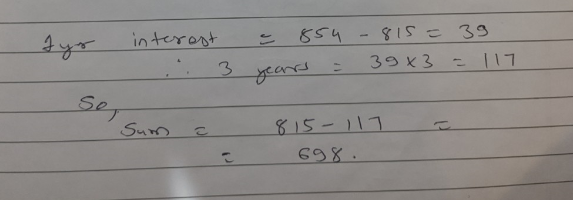 1yr interest = 854 - 815 = 39
∴ 3 years = 39 x 3 = 117
So,
Sum = 815 - 117 =
= 698.